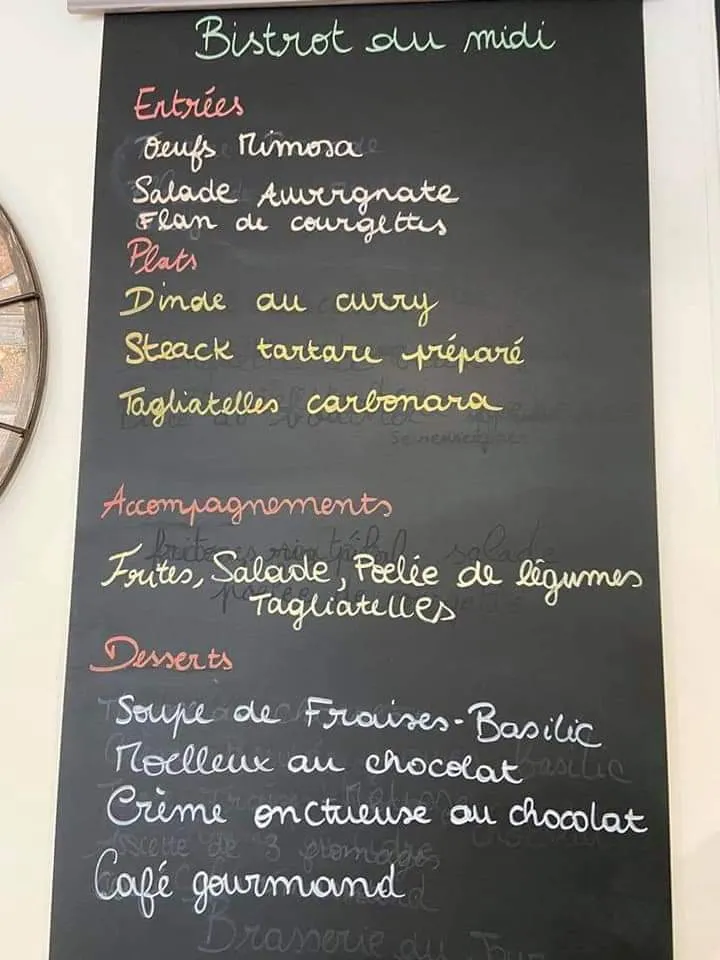 Bistrot du midi
Entrées
Oeufs Mimosa
Salade Auvergnate
Flan de courgettes
Plats
Dinde au curry
Steack tartare préparé
Tagliatelles carbonara
Accompagnements
Frites, Salade, Poêlée de légumes
Tagliatelles
Desserts
Soupe de Fraises-Basilic
Moelleux au chocolat
Crème onctueuse au chocolat
Assiette de 3 fromages
Café gourmand
Brasserie du Jour